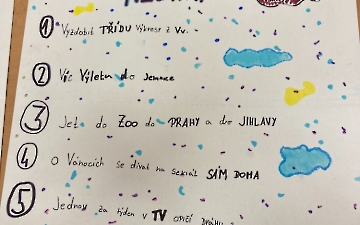 1 Vyzdobit TŘÍDU výkresy z Vv.
2 Víc Výletů do Jemnice
3 Jet do ZOO do PRAHY a do JIHLAVY
4 O Vánocích se dívat na seriál SÁM DOMA
5 Jednou za týden v TV opičí dráhu